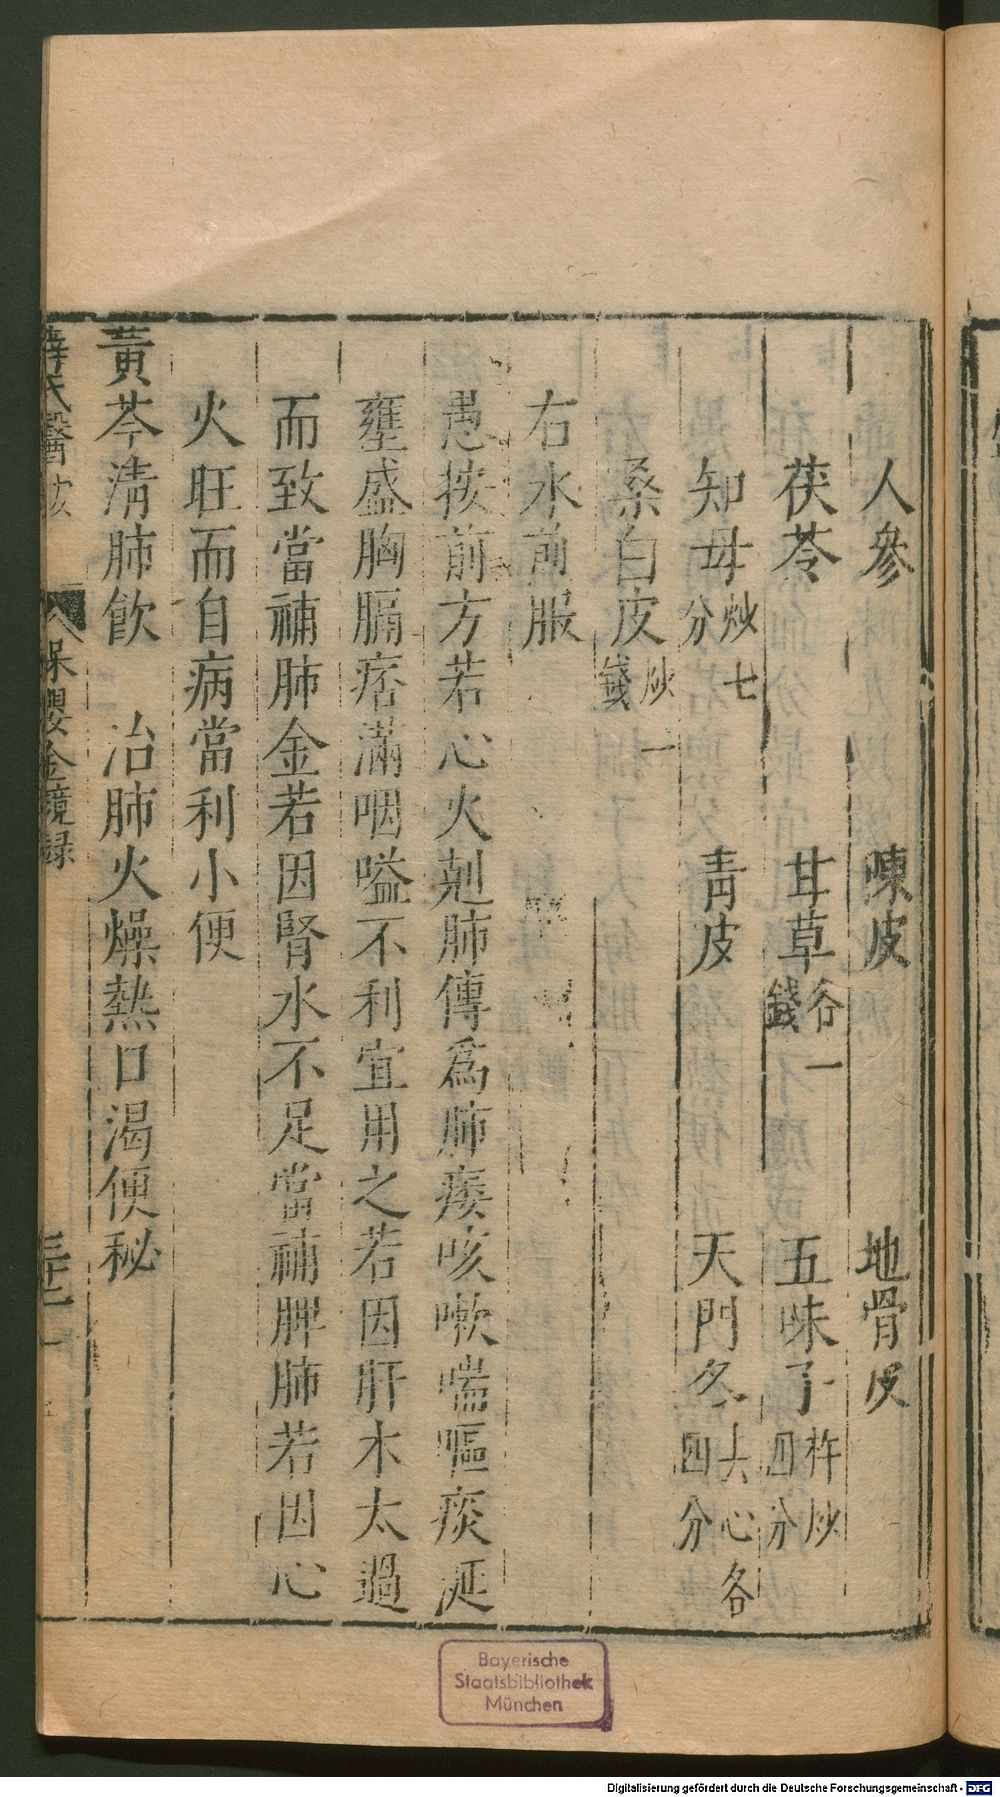 人參　陳皮　地骨皮
茯苓　甘草各一錢　五味子杵炒四分
知母炒七分　青皮　天門冬去心各四分
桑白皮炒一錢
右水煎服
愚按前方若心火剋肺傳爲肺痿咳嗽喘嘔痰涎
壅盛胸膈痞滿咽嗌不利宜用之若因肝木太過
而致當補肺金若因腎水不足當補脾肺若因心
火旺而自病當利小便
黃芩清肺飲　治肺火燥熱口渴便秘
薛氏醫按　保嬰金鏡録
Bayerische
Staatsbibliothek
München
Digitalisierung gefördert durch die Deutsche Forschungsgemeinschaft - DFG